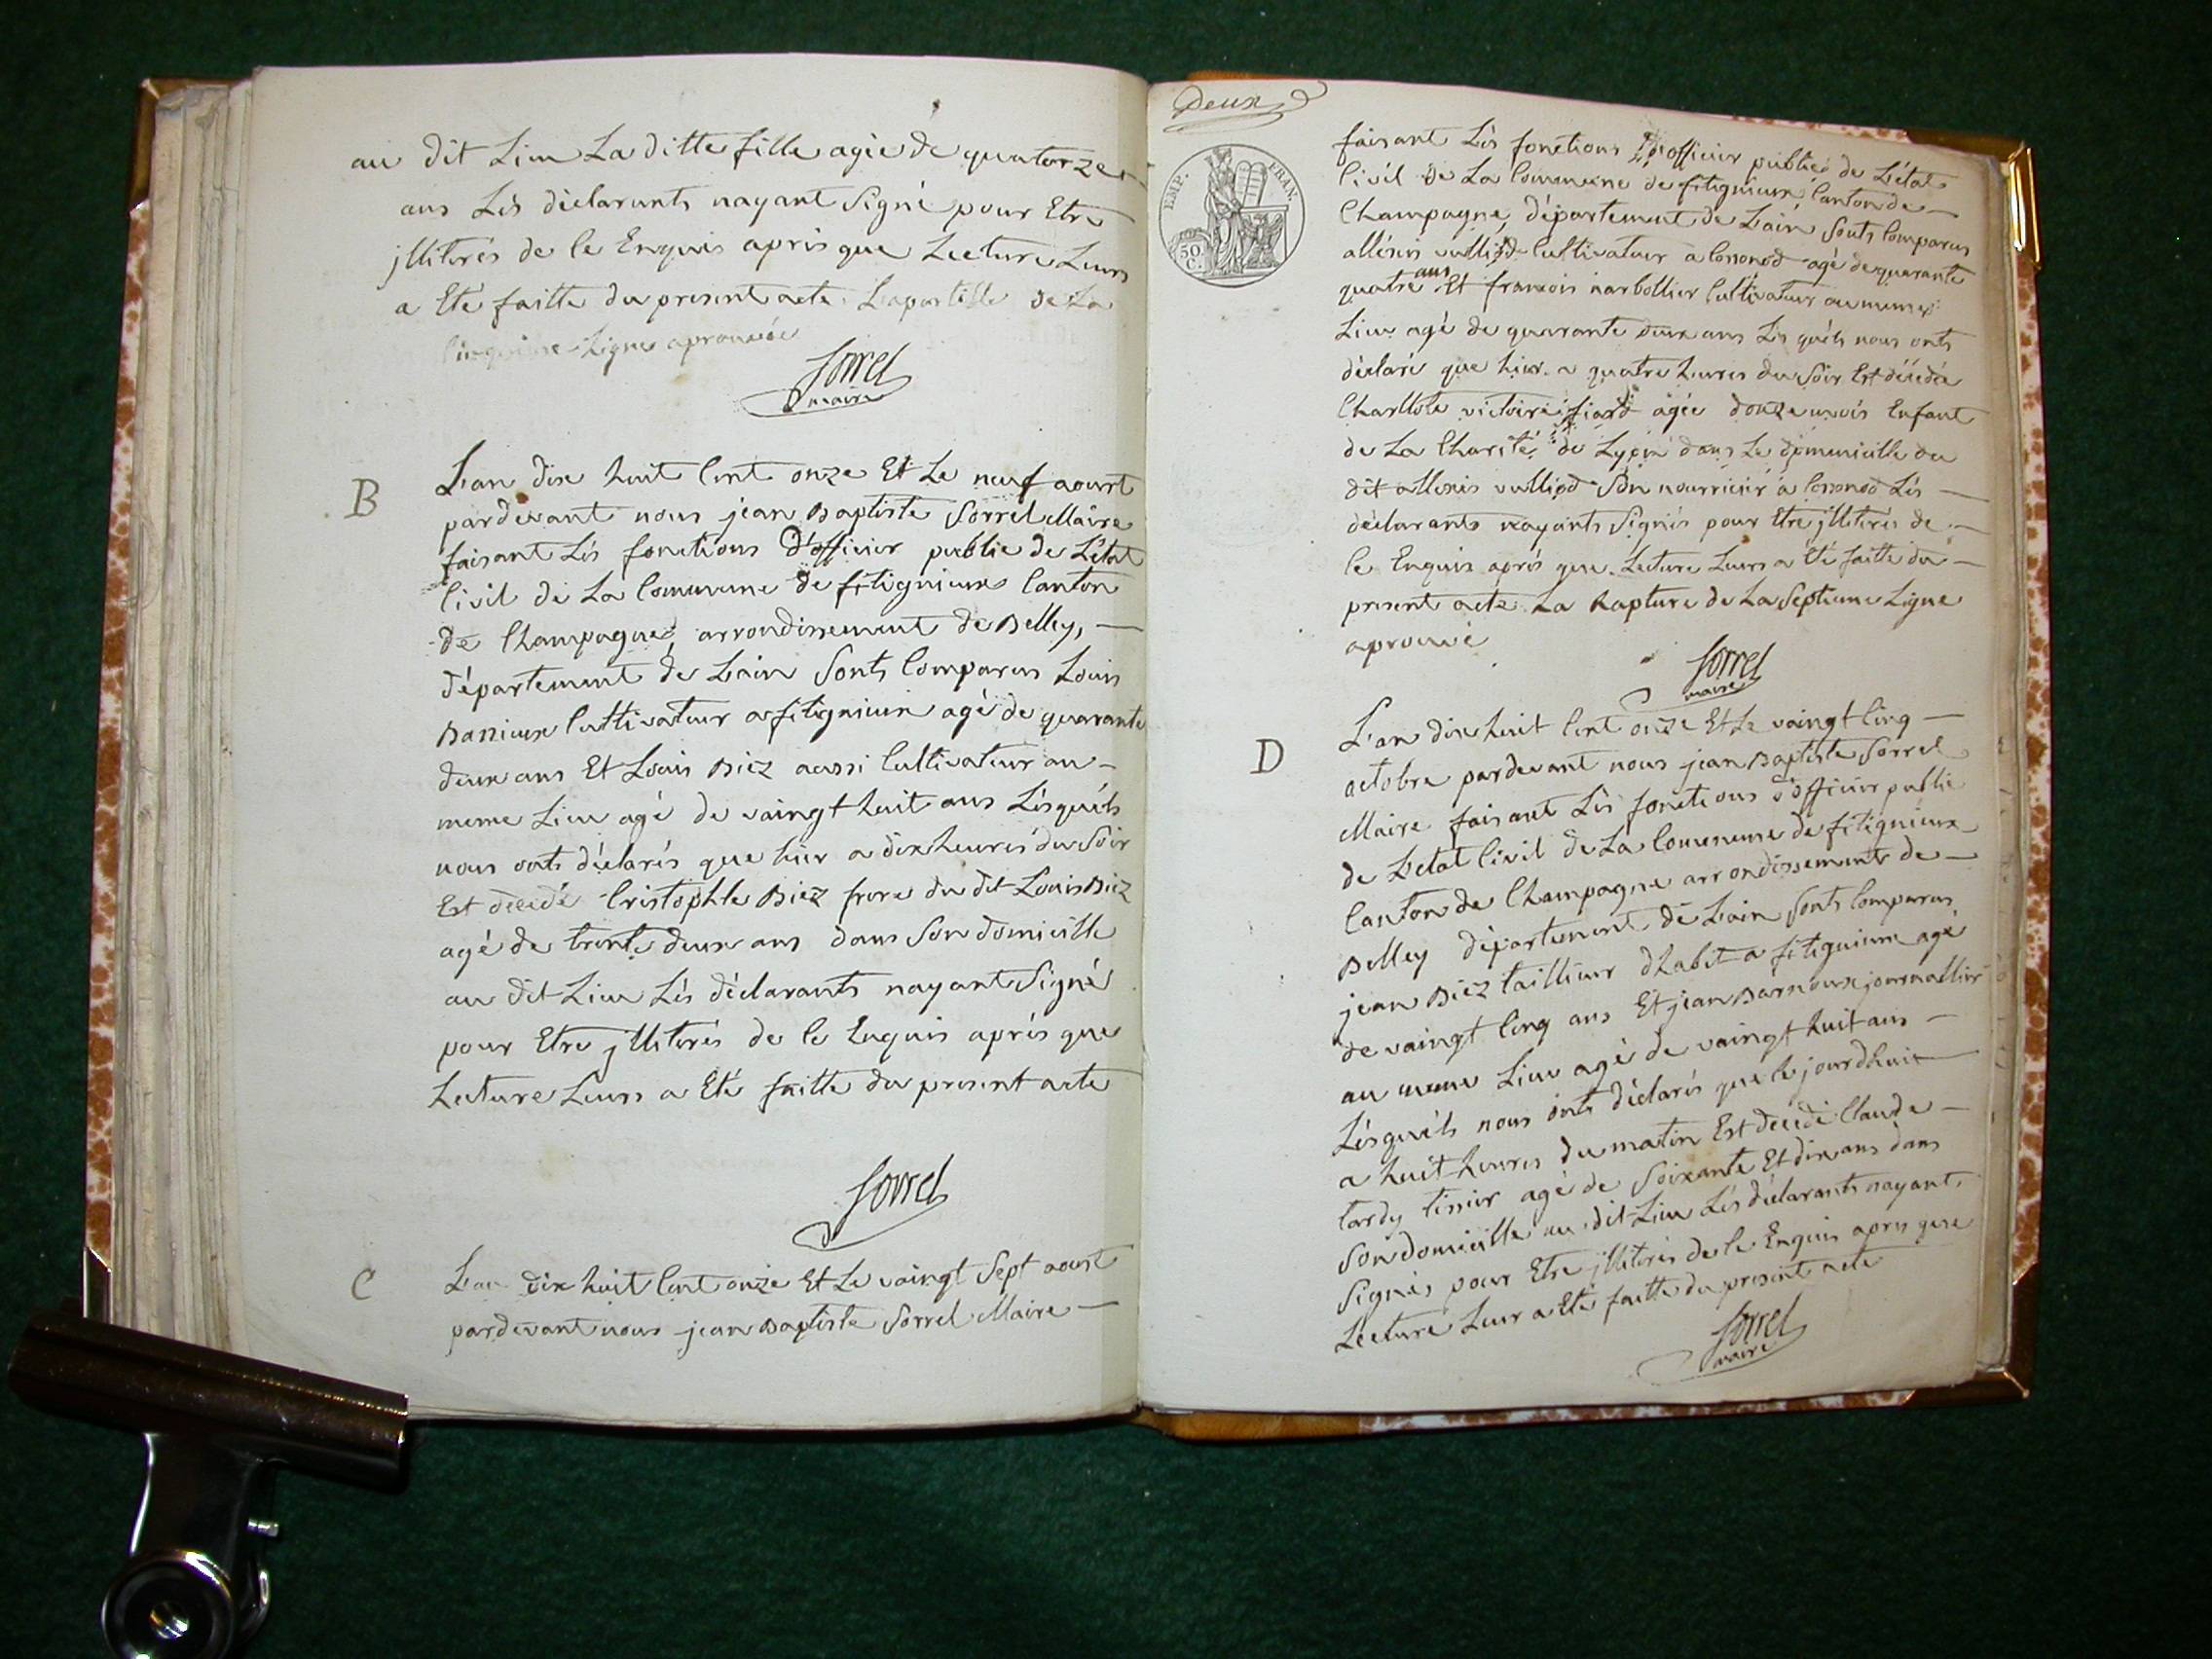 au dit Lieu La ditte fille agée de quatorze
ans Lés déclarants nayant Signé pour Etre
jlliterés de ce Enquis aprés que Lecture Leurs
a Eté faitte du present acte. Lapostille de La
cinquieme Ligne aprouvée
Sorrel
maire
B
L'an dix huit Cent onze Et Le neuf aoust
pardevant nous jean Baptiste Sorrel Maire
faisant Lés fonctions D'officier public de L'état
Civil de La Commune de fitignieux Canton
de Champagne, arrondissement de Belley, —
département de L'ain Sonts Comparus Louis
Banieux Cultivateur a fitignieux agé de quarante
deux ans Et Louis Biez aussi Cultivateur au —
meme Lieu agé de vaingt huit ans Lésquéls
nous onts déclarés que hier a dix heures du Soir
Est décédé Cristophle Biez frere du dit Louis Biez
agé de trente deux ans dans Son domicille
au dit Lieu Lés déclarants nayant Signé
pour Etre jlliterés de ce Enquis aprés que
Lecture Leurs a Eté faitte du present acte
Sorrel
C
L'an dix huit Cent onze Et Le vaingt Sept aoust
pardevant nous jean Baptiste Sorrel Maire —
Deux
EMP. FRAN.
50 C.
faisant Lés fonctions D'officier public de L'état
Civil de La Commune de fitignieux Canton de —
Champagne, département de L'ain Sonts Comparus
alléxis vulliod Cultivateur a agé de quarante
quatre ans Et francois narbollier Cultivateur au meme
Lieu agé de quarante deux ans Lés quéls nous onts
déclaré que hier a quatre heures du Soir Est décédée
Charllote victoire fiard agée donze mois Enfant
de La Charité de Lyon dans Le domicille du
dit allexis vulliod Son nourricier a Lés —
déclarants nayants Signés pour Etre jlliterés de —
ce Enquis aprés que Lecture Leurs a Eté faitte du —
present acte La Rapture de La Septieme Ligne
aprouvé
Sorrel
maire
D
L'an dix huit Cent onze Et Le vaingt Cinq —
octobre pardevant nous jean Baptiste Sorrel
Maire faisant Lés fonctions d'officier public
de L'etat Civil de La Commune de fitignieux
Canton de Champagne arrondissement de —
Belley département de L'ain Sonts Comparus
jean Biez tailleur dhabit a fitignieux agé
de vaingt Cinq ans Et jean Barnoux journallier
au meme Lieu agé de vaingt huit ans —
Lésquéls nous onts déclarés que ce jourdhuit
a huit heures du matin Est décédé Claude —
tardy tissier agé de Soixante Et dix ans dans
Son domicille au dit Lieu Lés déclarants nayant
Signés pour Etre jlliterés de ce Enquis aprés que
Lecture Leur a Eté faitte du present acte
Sorrel
maire